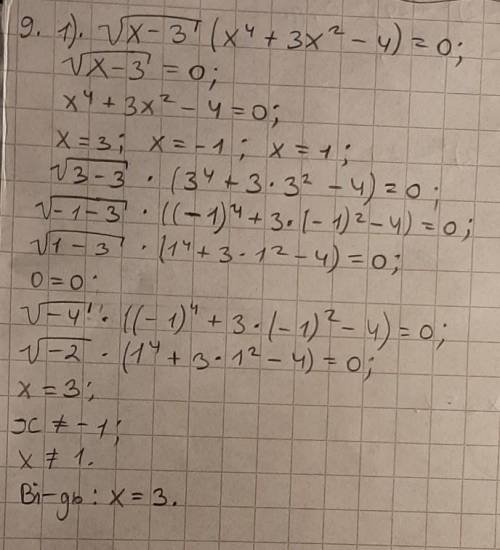 9. 1). √(x-3) (x⁴ + 3x² - 4) = 0;
√(x-3) = 0;
x⁴ + 3x² - 4 = 0;
x = 3; x = -1; x = 1;
√(3-3) · (3⁴ + 3·3² - 4) = 0;
√(-1-3) · ((-1)⁴ + 3·(-1)² - 4) = 0;
√(1-3) · (1⁴ + 3·1² - 4) = 0;
0 = 0;
√(-4) · ((-1)⁴ + 3·(-1)² - 4) = 0;
√(-2) · (1⁴ + 3·1² - 4) = 0;
x = 3;
x ≠ -1;
x ≠ 1.
Ві-дь: x = 3.